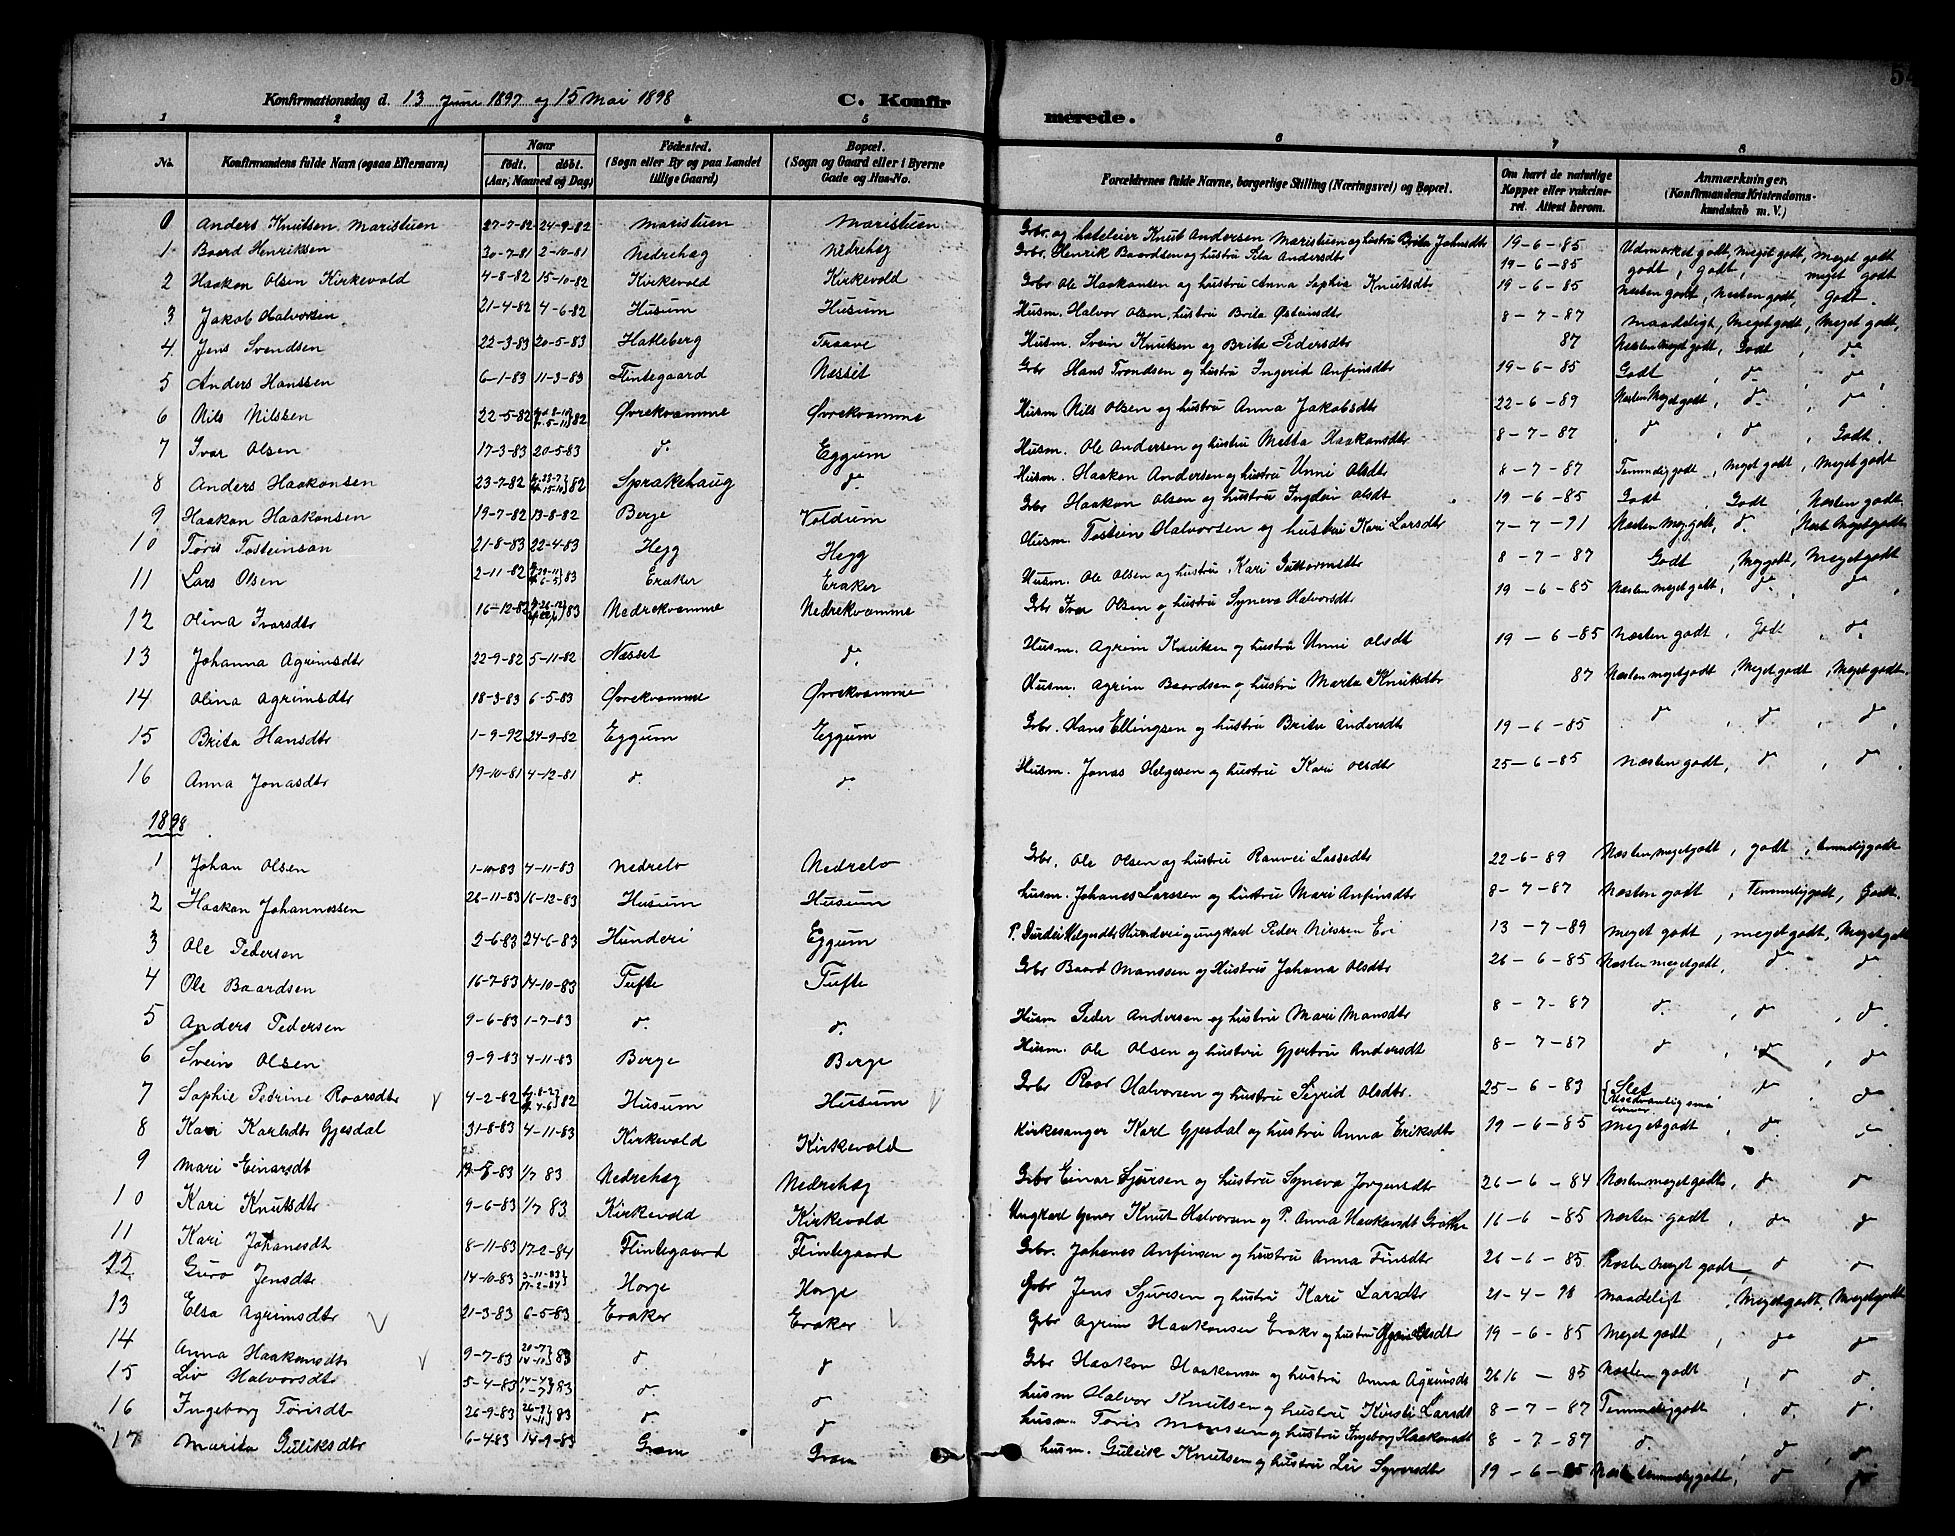 54
Konfirmationsdag d. 13 Juni 1897 og 15 Mai 1898 C. Konfirmerede.
1 2 3 4 5 6 7 8
No. Konfirmandens fulde Navn (ogsaa Efternavn) Naar født. døbt. (Aar, Maaned og Dag) Fødested. (Sogn eller By og paa Landet tillige Gaard) Bopæl. (Sogn og Gaard eller i Byerne Gade og Hus-No. Forældrenes fulde Navne, borgerlige Stilling (Næringsvei) og Bopæl. Om havt de naturlige Kopper eller vaccineret. Attest herom. Anmærkninger, (Konfirmandens Kristendomskundskab m. V.)
0 Anders Knutsen Maristuen 27-7-82 24-9-82 Maristuen Maristuen Gbr. og hoteleier Knut Andersen Maristuen og hustru Brita Johnsdtr 19-6-85 Udmærket godt, meget godt, meget godt
1 Baard Henriksen 30-7-81 2-10-81 Nedrehæg Nedrehæg Gbr. Henrik Baardsen og hustru Sila Andersdtr 19-6-85 godt, godt, meget godt
2 Haakon Olsen Kirkevold 4-8-82 15-10-82 Kirkevold Kirkevold Gbr Ole Haakonsen og hustru Anna Sophie Knutsdtr 19-6-85 Næsten godt, Næsten godt, Godt.
3 Jakob Halvorsen 21-4-82 4-6-82 Husum Husum Husm. Halvor Olsen, hustru Brita Østeinsdtr 8-7-87 maadeligt, Meget godt, Meget godt,
4 Jens Svendsen 22-3-83 20-5-83 Hatleberg Traave Husm. Svein Knutsen og Brita Pedersdtr 87 Næsten meget godt, Godt, do
5 Anders Hanssen 6-1-83 11-3-83 Flintegaard Næsset Gbr Hans Trondsen og hustru Ingerid Anfinsdtr 19-6-85 Godt, do, do,
6 Nils Nilssen 22-5-82 8-10 5-11 82 Øvrekvamme Øvrekvamme Husm Nils Olsen og hustru Anna Jakobsdtr 22-6-89 Næsten Meget godt, do, do
7 Ivar Olsen 17-3-83 20-5-83 do. Eggum Husm. Ole Andersen og hustru Metta Haakonsdtr 8-7-87 do, do, Godt.
8 Anders Haakonsen 23-7-82 23-7 15-10 82 Sprakehaug do Husm. Haakon Andersen og hustru Unni Olsdt 8-7-87 Temmelig godt, Meget godt, Meget godt
9 Haakon Haakonsen 19-7-82 13-8-82 Berge Voldum Gbr Haakon Olsen og hustru Ingbør Olsdt 19-6-85 Godt, Godt, Næsten godt
10 Toris Tosteinsøn 21-8-83 22-4-83 Hegg Hegg Husm. Tostein Halvorsen og hustru Kari Larsdtr 7-7-91 Næsten Meg godt, do, Næst Megetgodt
11 Lars Olsen 2-11-82 29-11 6-5 83 Eraker Eraker Husm. Ole Olsen og hustru, Kari Guttormsdtr 8-7-87 Godt, Meg godt, Meget godt
12 Olina Ivarsdtr 16-12-82 26-12 83 Nedrekvamme Nedrekvamme Gbr Ivar Olsen og hustru Syneva Halvorsdtr 19-6-85 Næsten meget godt, do, do,
13 Johanna Agrimsdtr 22-9-82 5-11-82 Næsset do. Husm. Agrim Knutsen og hustru Unni Olsdt 19-6-85 Næsten godt, Godt, do
14 Olina Agrimsdtr 18-3-83 6-5-83 Øvrekvamme Øvrekvamme Husm. Agrim Baardsen og hustru Marta Knutsdtr 87 Næsten meget godt, Meget godt, Meget godt.
15 Brita Hansdtr 1-9-92 24-9-82 Eggum Eggum Gbr. Hans Ellingsen og hustru Brita Andersdtr 19-6-85 do, do, do,
16 Anna Jonasdtr 19-10-81 4-12-81 do. do. Husm. Jonas Helgesen og hustru Kari Olsdtr 25-6-85 Næsten godt, do, do,
1898
1 Johan Olsen 1-10-83 4-11-83 Nedrelo Nedrelo Gbr. Ole Olsen og hustru Ranvei Lassedtr 22-6-89 Næsten meget godt, godt, temmelig godt
2 Haakon Johannessen 26-11-83 16-12-83 Husum Husum husm. Johanes Larssen og hustru Mari Anfinsdtr 8-7-87 Næsten godt, Temmelig godt, Godt.
3 Ole Pedersen 2-6-83 24-6-83 Hunderi Eggum P. Durdei Helgesdtr Hunderi og ungkarl Peder Nilssen Eri 13-7-89 meget godt, meget godt, Meget godt
4 Ole Baardsen 16-7-83 14-10-83 Tufte Tufte Gbr Baard Monssen og Hustru Johana Olsdtr 26-6-85 Næsten meget godt, do do
5 Anders Pedersen 9-6-83 1-7-83 do. do. Husm Peder Andersen og hustru Mari Mansdtr 8-7-87 do., do, do
6 Svein Olsen 9-9-83 4-11-83 Berge Berge Husm. Ole Olsen og hustru Gjertru Andersdt 8-7-87 do, do, do
7 Sophie Petrine Roarsdtr V 4-2-82 8-2 4-6 82 Husum Husum V Gbr Roar Halvorsen og hustru Sigrid Olsdtr. 25-6-83 Slet Usedvanlig smaa evner do do
8 Kari Karlsdtr Gjesdal 31-8-83 4-11-83 Kirkevold Kirkevold Kirkesanger Karl Gjesdal og hustru Anna Eriksdtr 19-6-85 Meget godt, do, do
9 Mari Einarsdt 83 1/7 83 Nedrehæg Nedrehæg Gbr Einar Sjursen og hustru Syneva Jørgensdtr 26-6-84 Næsten meget godt, do do
10 Kari Knutsdtr 9-6-83 1/7 83 Kirkevold Kirkevold Ungkarl tjener Knut Halvorsn og P. Anna Haakonsdt 16-6-85 Næsten godt, do do
11 Kari Johanesdt 8-11-83 17-2-84 Flintegaard Flintegaard Gbr. Johanes Anfinsen og hustru Anna Finsdtr 26-6-85 Næsten meget godt, do do
12 Guro Jensdtr 14-10-83 3-11-83 17-2-84 Horge Horge Gbr Jens Sjursen og hustru Kari Larsdtr 21-4-98 Maadeligt, Meget godt, Meget godt
13 Elsa Agrimsdtr V 21-3-83 6-5-83 Eraker Eraker V Gbr Agrim Haakonsen Eraker og hustru 19-6-85 Meget godt, do do
14 Anna Haakonsdtr V 9-7-83 20-7 14-10 83 do do Gbr Haakon Haakonsen og hustru Anna Agrimsdt 26 16 - 85 Næsten godt, do do.
15 Liv Halvorsdtr 5-4-83 14-4 1-7 83 do. do husm Halvor Knutsen og hustru Kirsti Larsdt 8-7-87 Temmelig godt, do. do
16 Ingeborg Torisdtr 26-9-83 26-9 4-11 83 do. do husm. Toris Monsen og hustru Ingeborg Haakonsdt 8-7-87 do., do, do
17 Marita Guliksdtr 6-4-83 14-9-83 Grøm Grøm husm. Guleik Knutsen og hustru Liv Syversdtr 19-6-85 Næst temmelig godt, do do